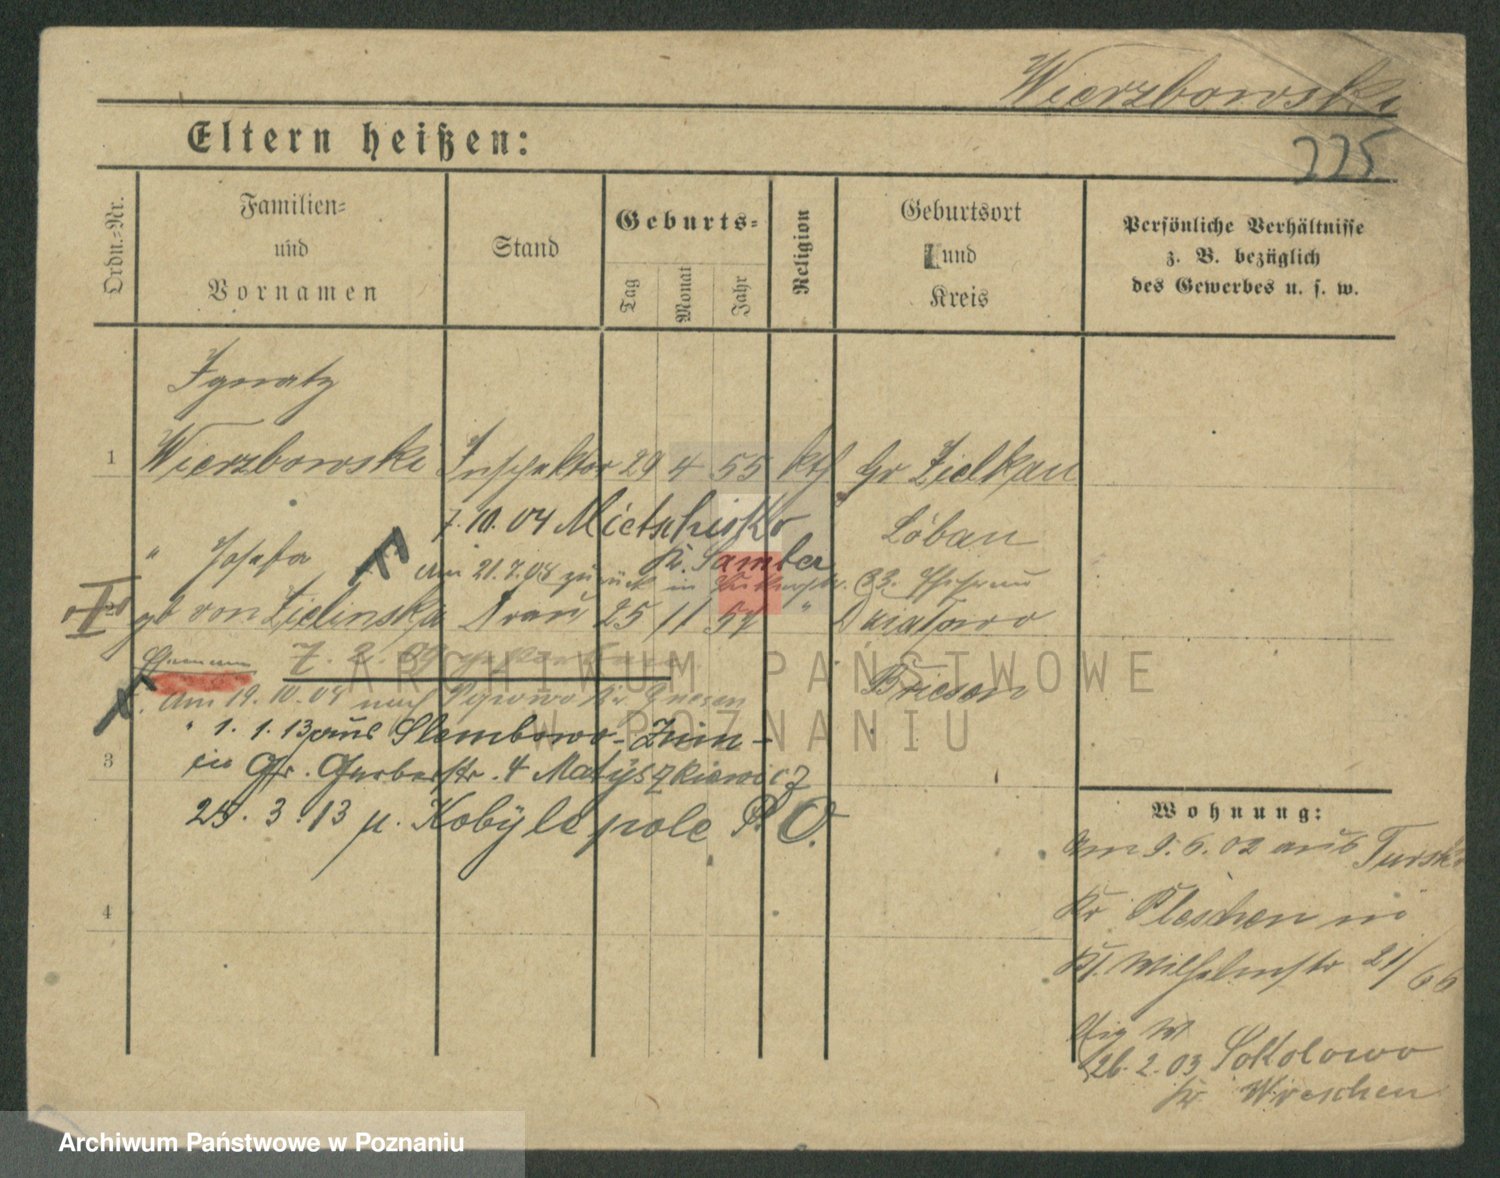 Wierzbowski
225
Eltern heißen:
Ordn.-Nr.
Familien-
und
Vornamen
Stand
Geburts-
Tag
Monat
Jahr
Religion
Geburtsort
und
Kreis
Persönliche Verhältnisse
z. B. bezüglich
des Gewerbes u. s. w.
Ignatz
1 Wierzbowski Inspektor 29 4 55 kth Gr Zielkau
7.10.04 Mietschisko Löbau
" Josefa Kr. Samter
am 21.7.08 zurück in 33.
2 gb von Zielinska Frau 25 11 57 "
Ehemann 7. 2. 09
Briesen
Am 19.10.04 nach Kr Gnesen
" 1.1.13 aus Slembowo-Znin-
3 in Gr. Gerberstr. 4 Matyszkiewicz
25.3.13 n. Kobylepole P. O.
4
Wohnung:
Am 9.6.02 aus Tursko
Kr Pleschen in
Wilhelmstr 21/66
26.2.03 Sokolowo
Kr Wreschen
ARCHIWUM PAŃSTWOWE
W POZNANIU
Archiwum Państwowe w Poznaniu